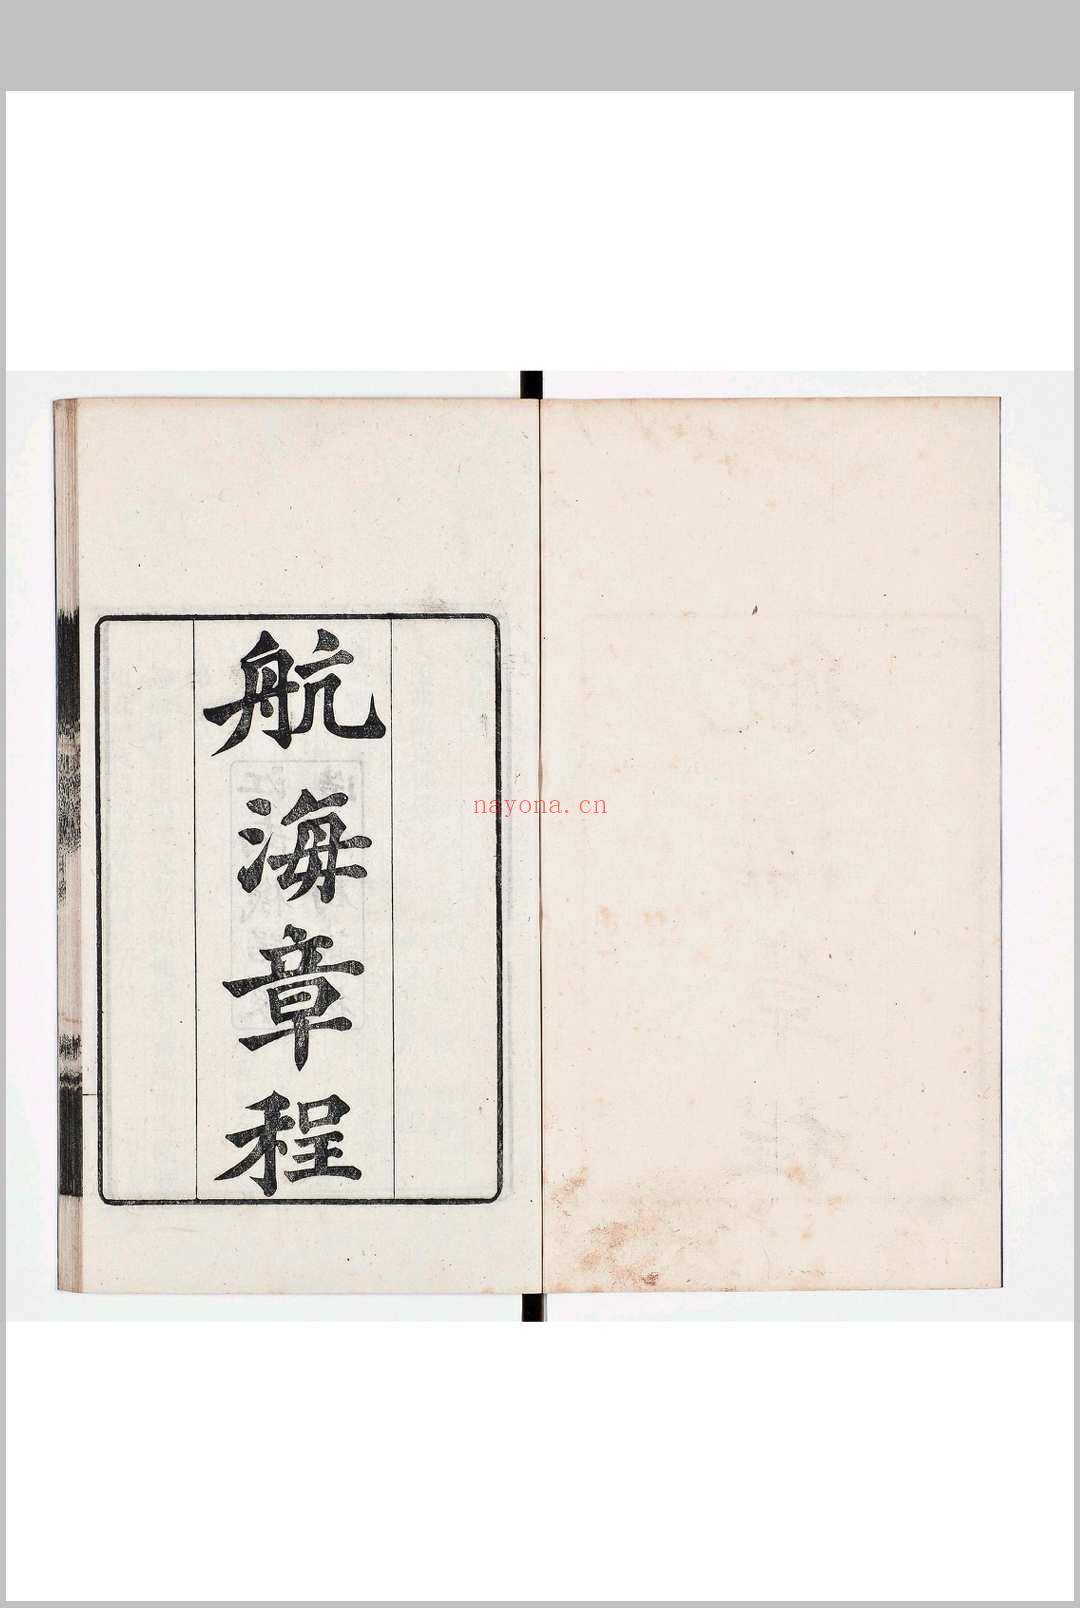 航海章程
nayona.cn